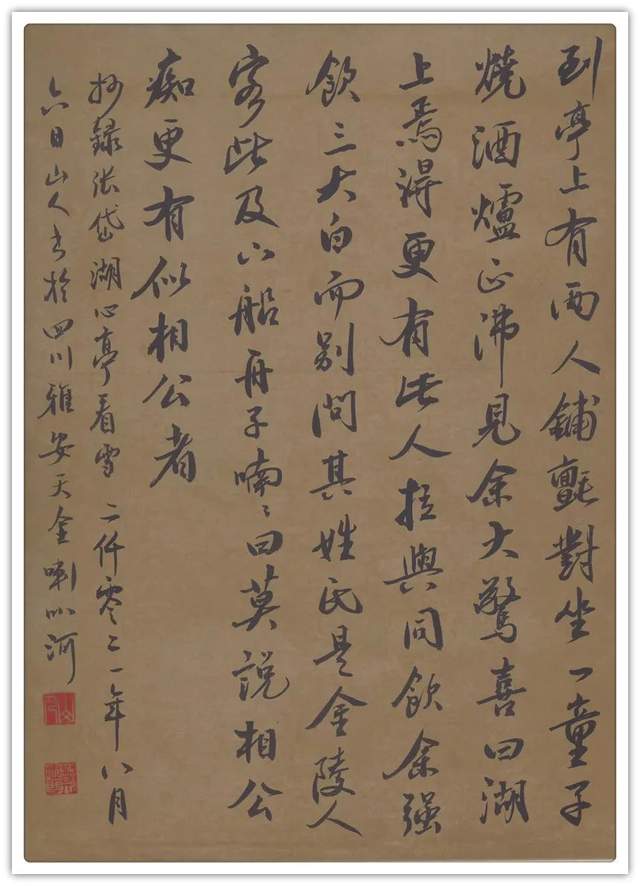 到亭上有两人鋪氈對坐一童子
燒酒爐正沸見余大驚喜曰湖
上焉得更有此人拉與同飲余强
飲三大白而别問其姓氏是金陵人
客此及下船舟子喃〻曰莫説相公
痴更有似相公者
抄録張岱湖心亭看雪 二仟零二一年八月
六日山人書於四川雅安天全喇叭河